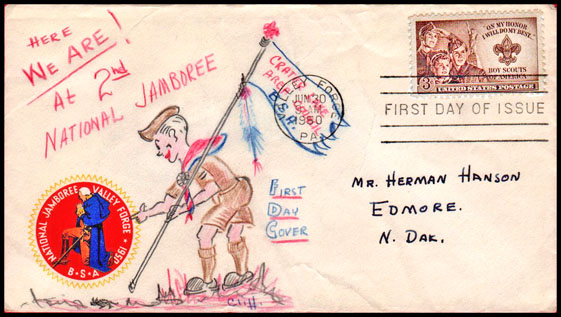 HERE
WE ARE!
AT 2nd
NATIONAL JAMBOREE
CRATER LAKE
AREA COUNCIL
B.S.A.
VALLEY FORGE
JUN 30
AM
1950
PA.
"ON MY HONOR
I WILL DO MY BEST..."
3¢
BOY SCOUTS
OF AMERICA
UNITED STATES POSTAGE
FIRST DAY OF ISSUE
MR. HERMAN HANSON
EDMORE.
N. DAK.
FIRST
DAY
COVER
NATIONAL JAMBOREE VALLEY FORGE • 1950
B•S•A